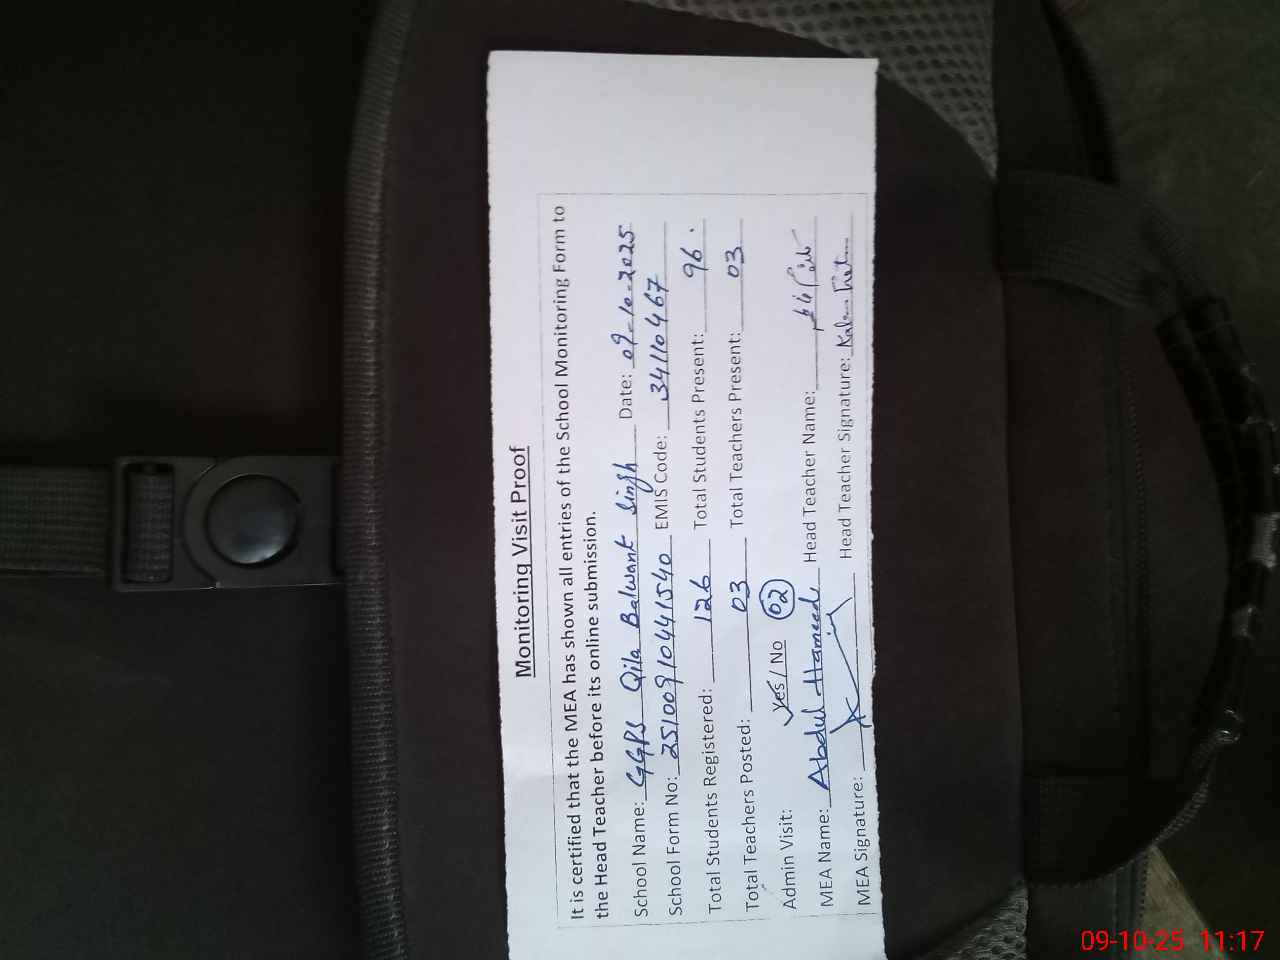 Monitoring Visit Proof
It is certified that the MEA has shown all entries of the School Monitoring Form to
the Head Teacher before its online submission.
School Name: GGPS Qila Balwant Singh Date: 09-10-2025
School Form No: 251009104441540 EMIS Code: 34110467
Total Students Registered: 126 Total Students Present: 96.
Total Teachers Posted: 03 Total Teachers Present: 03
Admin Visit: Yes / No 02
MEA Name: Abdul Hameed Head Teacher Name:
MEA Signature: Head Teacher Signature:
09-10-25 11:17